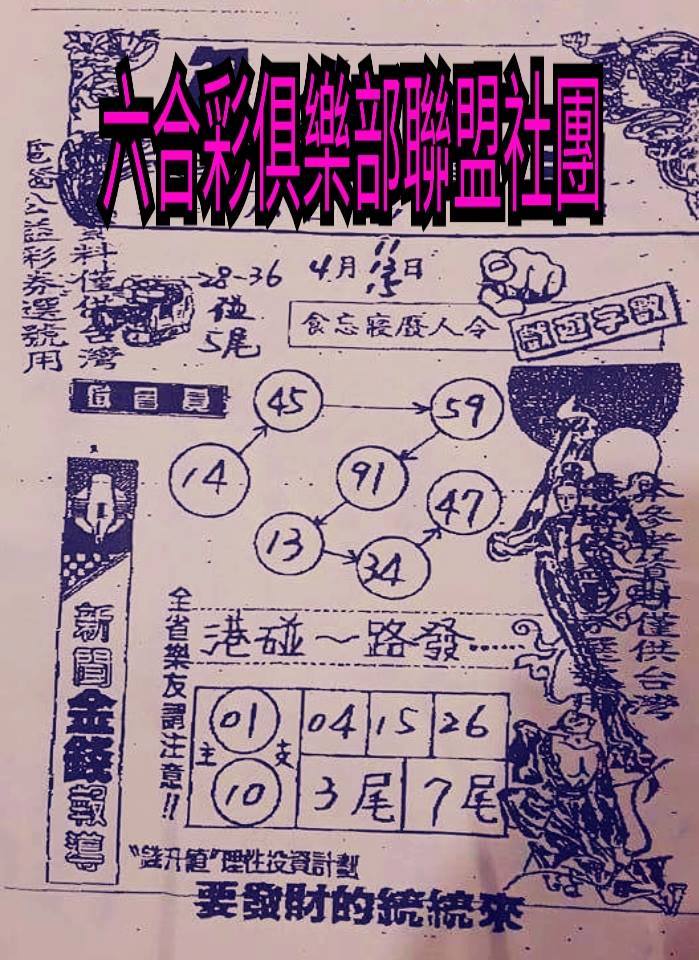 六合彩俱樂部聯盟社團
28-36
碰
5尾
4月 11 13 15 日
食忘寢廢人令
資料僅供台灣
公益彩券選號用
45
59
14
91
47
13
34
本參考資料僅供台灣
新聞金錢報導
全省樂友請注意!!
港碰~一路發……
主
支
01
10
04
15
26
3尾
7尾
理性投資計劃
要發財的統統來